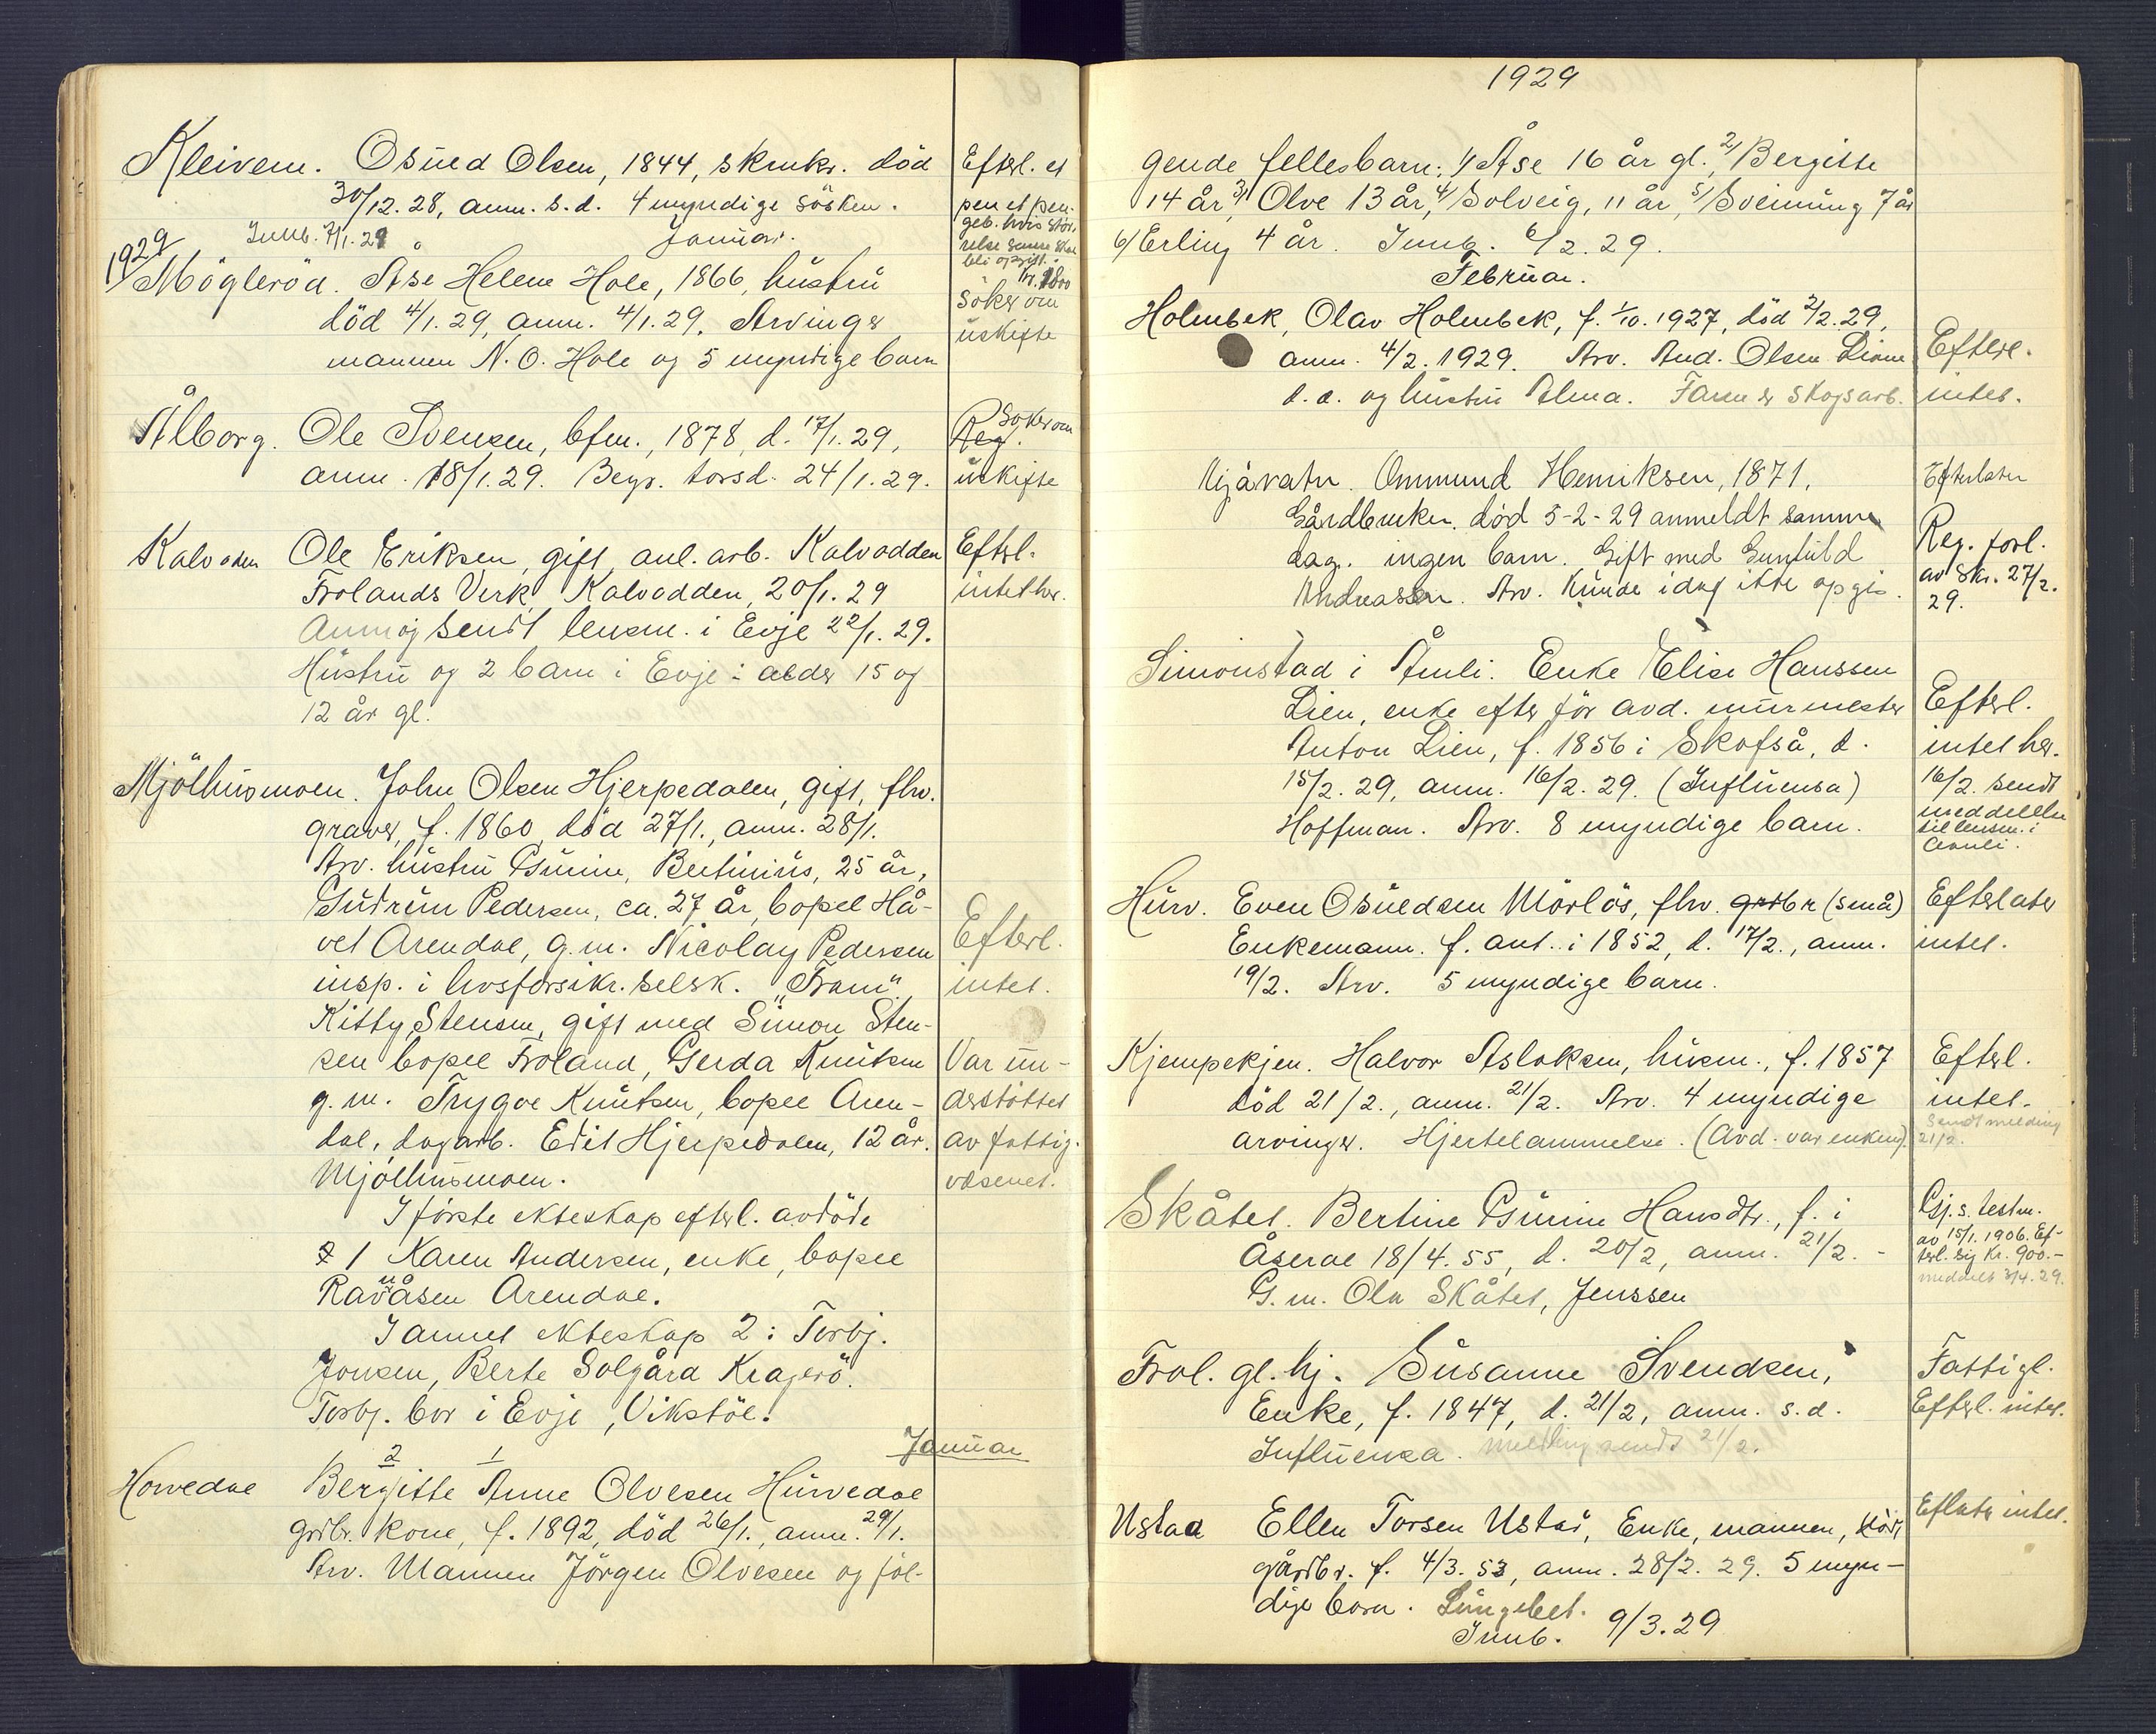 Kleivene. Osuld Olsen, 1844, skrukr. död
30/12.28, anm. s.d. 4 myndige sösken.
Innb. 7/1.29 Januar.
Efterl. et
pen et pen.
geb. hvis stör-
relse senere skal
bli opgitt.
kr. 1800
1929
Mögleröd. Åse Helene Hole, 1866, hustru
död 4/1.29, anm. 4/1.29. Arvinger
mannen N. O. Hole og 5 myndige barn
Söker om
uskifte
Ålborg. Ole Svensen, bfm., 1878, d. 17/1.29,
anm. 18/1.29. Begr. torsd. 24/1.29.
Reg. Söker om
uskifte
Kalvodden Ole Eriksen, gift, anl. arb. Kalvodden
Frolands Verk, Kalvodden, 20/1.29
Anm og sendt lensm. i Evje 22/1.29.
Hustru og 2 barn i Evje: alder 15 og
12 år gl.
Efterl.
intet her.
Mjölhusmoen. John Olsen Hjerpedalen, gift, fhv.
graver, f. 1860, död 27/1., anm. 28/1.
Arv. hustru Gurine, Bertinius, 25 år,
Gudrun Pedersen, ca. 27 år, bopel Hå-
vet Arendal, g.m. Nicolay Pedersen
insp. i livsforsikr. selsk. "Fram"
Kitty Stensen, gift med Simon Sten-
sen bopel Froland, Gerda Knutsen
g.m. Trygve Knutsen, bopel Aren-
dal, dagarb. Edit Hjerpedalen, 12 år.
Mjölhusmoen.
Efterl.
intet.
Var un-
derstöttet
av fattig-
vesenet.
I förste ekteskap efterl. avdöde
2 1 Karen Andersen, enke, bopel
Ravnåsen Arendal.
I annet ekteskap 2: Torbj.
Jonsen, Berte Solgård Kragerö.
Torbj. bor i Evje, Vikstöl.
Januar
2 1
Hovvedal Bergitte Anne Olvesen Hurvedal
grdbr. kone, f. 1892, död 26/1., anm. 29/1.
Arv. Mannen Jörgen Olvesen og föl-
1929
gende fellesbarn: 1/ Åse 16 år gl. 2/ Bergitte
14 år, 3/ Olve 13 år, 4/ Solveig, 11 år, 5/ Sveinung 7 år
6/ Erling 4 år. Innb. 6/2.29.
Februar.
Holmbek, Olav Holmbek, f. 1/10.1927, död 2/2.29,
anm. 4/2.1929. Arv. And. Olsen Liene
d.e. og hustru Alma. Faren er skogsarb.
Efterl.
intet.
Mjåvatn. Ommund Henriksen, 1871,
Gårdbruker. död 5-2-29 anmeldt samme
dag. ingen barn. Gift med Gunhild
Andreassen. Arv. kunde idag ikke opgis.
Efterlater
Reg. forl.
av skr. 27/2.
29.
Simonstad i Åmli. Enke Elise Hanssen
Lien, enke efter för avd. murmester
Anton Lien, f. 1856 i Skofså, d.
15/2.29, anm. 16/2.29. (Influensa)
Hoffman. Arv. 8 myndige barn.
Efterl.
intet her.
16/2. sendt
meddelelse
til lensm. i
Åmli.
Hurv. Even Osuldsen Mörlös, fhv. grdbr (små)
Enkemann. f. ant. i 1852, d. 17/2., anm.
19/2. Arv. 5 myndige barn.
Efterlater
intet.
Kjempekjen. Halvor Aslaksen, husm., f. 1857
död 21/2., anm. 21/2. Arv. 4 myndige
arvinger. Hjertelammelse. (Avd. var enkem.)
Efterl.
intet.
Sendt melding
21/2.
Skåtet. Bertine Gurine Hansdtr., f. i
Åseral 18/4.55, d. 20/2, anm. 21/2.-
G.m. Ola Skåtet, Jenssen
Gj.s. testm.
av 15/1.1906. Ef-
terl. sig kr. 900.-
meddelt 3/4.29.
Frol. gl.hj. Susanne Svendsen,
Enke, f. 1847, d. 21/2, anm. s.d.
Influensa. Melding sendt 21/2.
Fattigl.
Efterl. intet.
Ustad Ellen Torsen Ustad, Enke, mannen, död,
gårdbr. f. 4/3.53, anm. 28/2.29. 5 myn-
dige barn. Lungebet.
Innb. 9/3.29
Eflater intet.